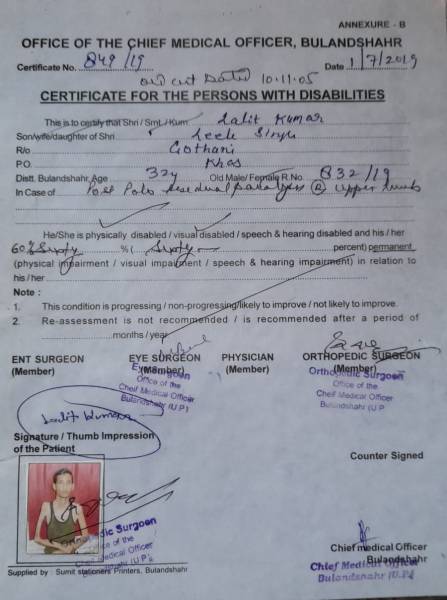 ANNEXURE - B
OFFICE OF THE CHIEF MEDICAL OFFICER, BULANDSHAHR
Certificate No. 849/19 Date 1/7/2019
old cert Dated 10.11.05
CERTIFICATE FOR THE PERSONS WITH DISABILITIES
This is to certify that Shri / Smt. / Kum. Lalit Kumar
Son/wife/daughter of Shri Singh
R/o Gothani
P.O. Khas
Distt. Bulandshahr Age 32y Old Male/ Female R.No. 832/19
In Case of Post Polio Residual paralysis R upper limb
He/She is physically disabled / visual disabled / speech & hearing disabled and his / her
60% Sixty % ( Sixty percent) permanent
(physical impairment / visual impairment / speech & hearing impairment) in relation to
his / her
Note :
1. This condition is progressing / non-progressing/likely to improve / not likely to improve.
2. Re-assessment is not recommended / is recommended after a period of
months / year
ENT SURGEON EYE SURGEON PHYSICIAN ORTHOPEDIC SURGEON
(Member) (Member) (Member) (Member)
Eye Surgoen
Office of the
Cheif Medical Officer
Bulandshahr (U.P.)
Orthopedic Surgoen
Office of the
Cheif Medical Officer
Bulandshahr (U.P.
Lalit Kumar
Signature / Thumb Impression
of the Patient
Counter Signed
dic Surgoen
ce of the
Medical Officer
(U.P.)
Chief medical Officer
Bulandshahr
Chief Medical Officer
Bulandshahr (U.P.)
Supplied by : Sumit stationers Printers, Bulandshahr